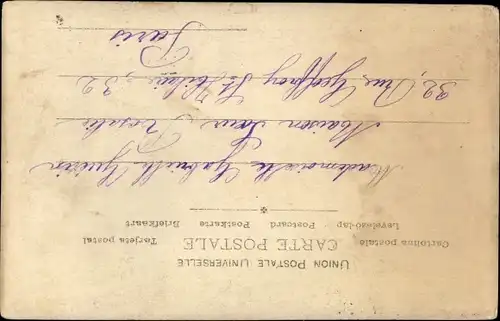 UNION POSTALE UNIVERSELLE
CARTE POSTALE
Cartolina postale
Tarjeta postal
Levelező-lap - Postcard - Postkarte - Briefkaart
Mademoiselle Gabrielle Guérin
Maison Sœur Rosalie
32, Rue Geoffroy St Hilaire, 32
Paris